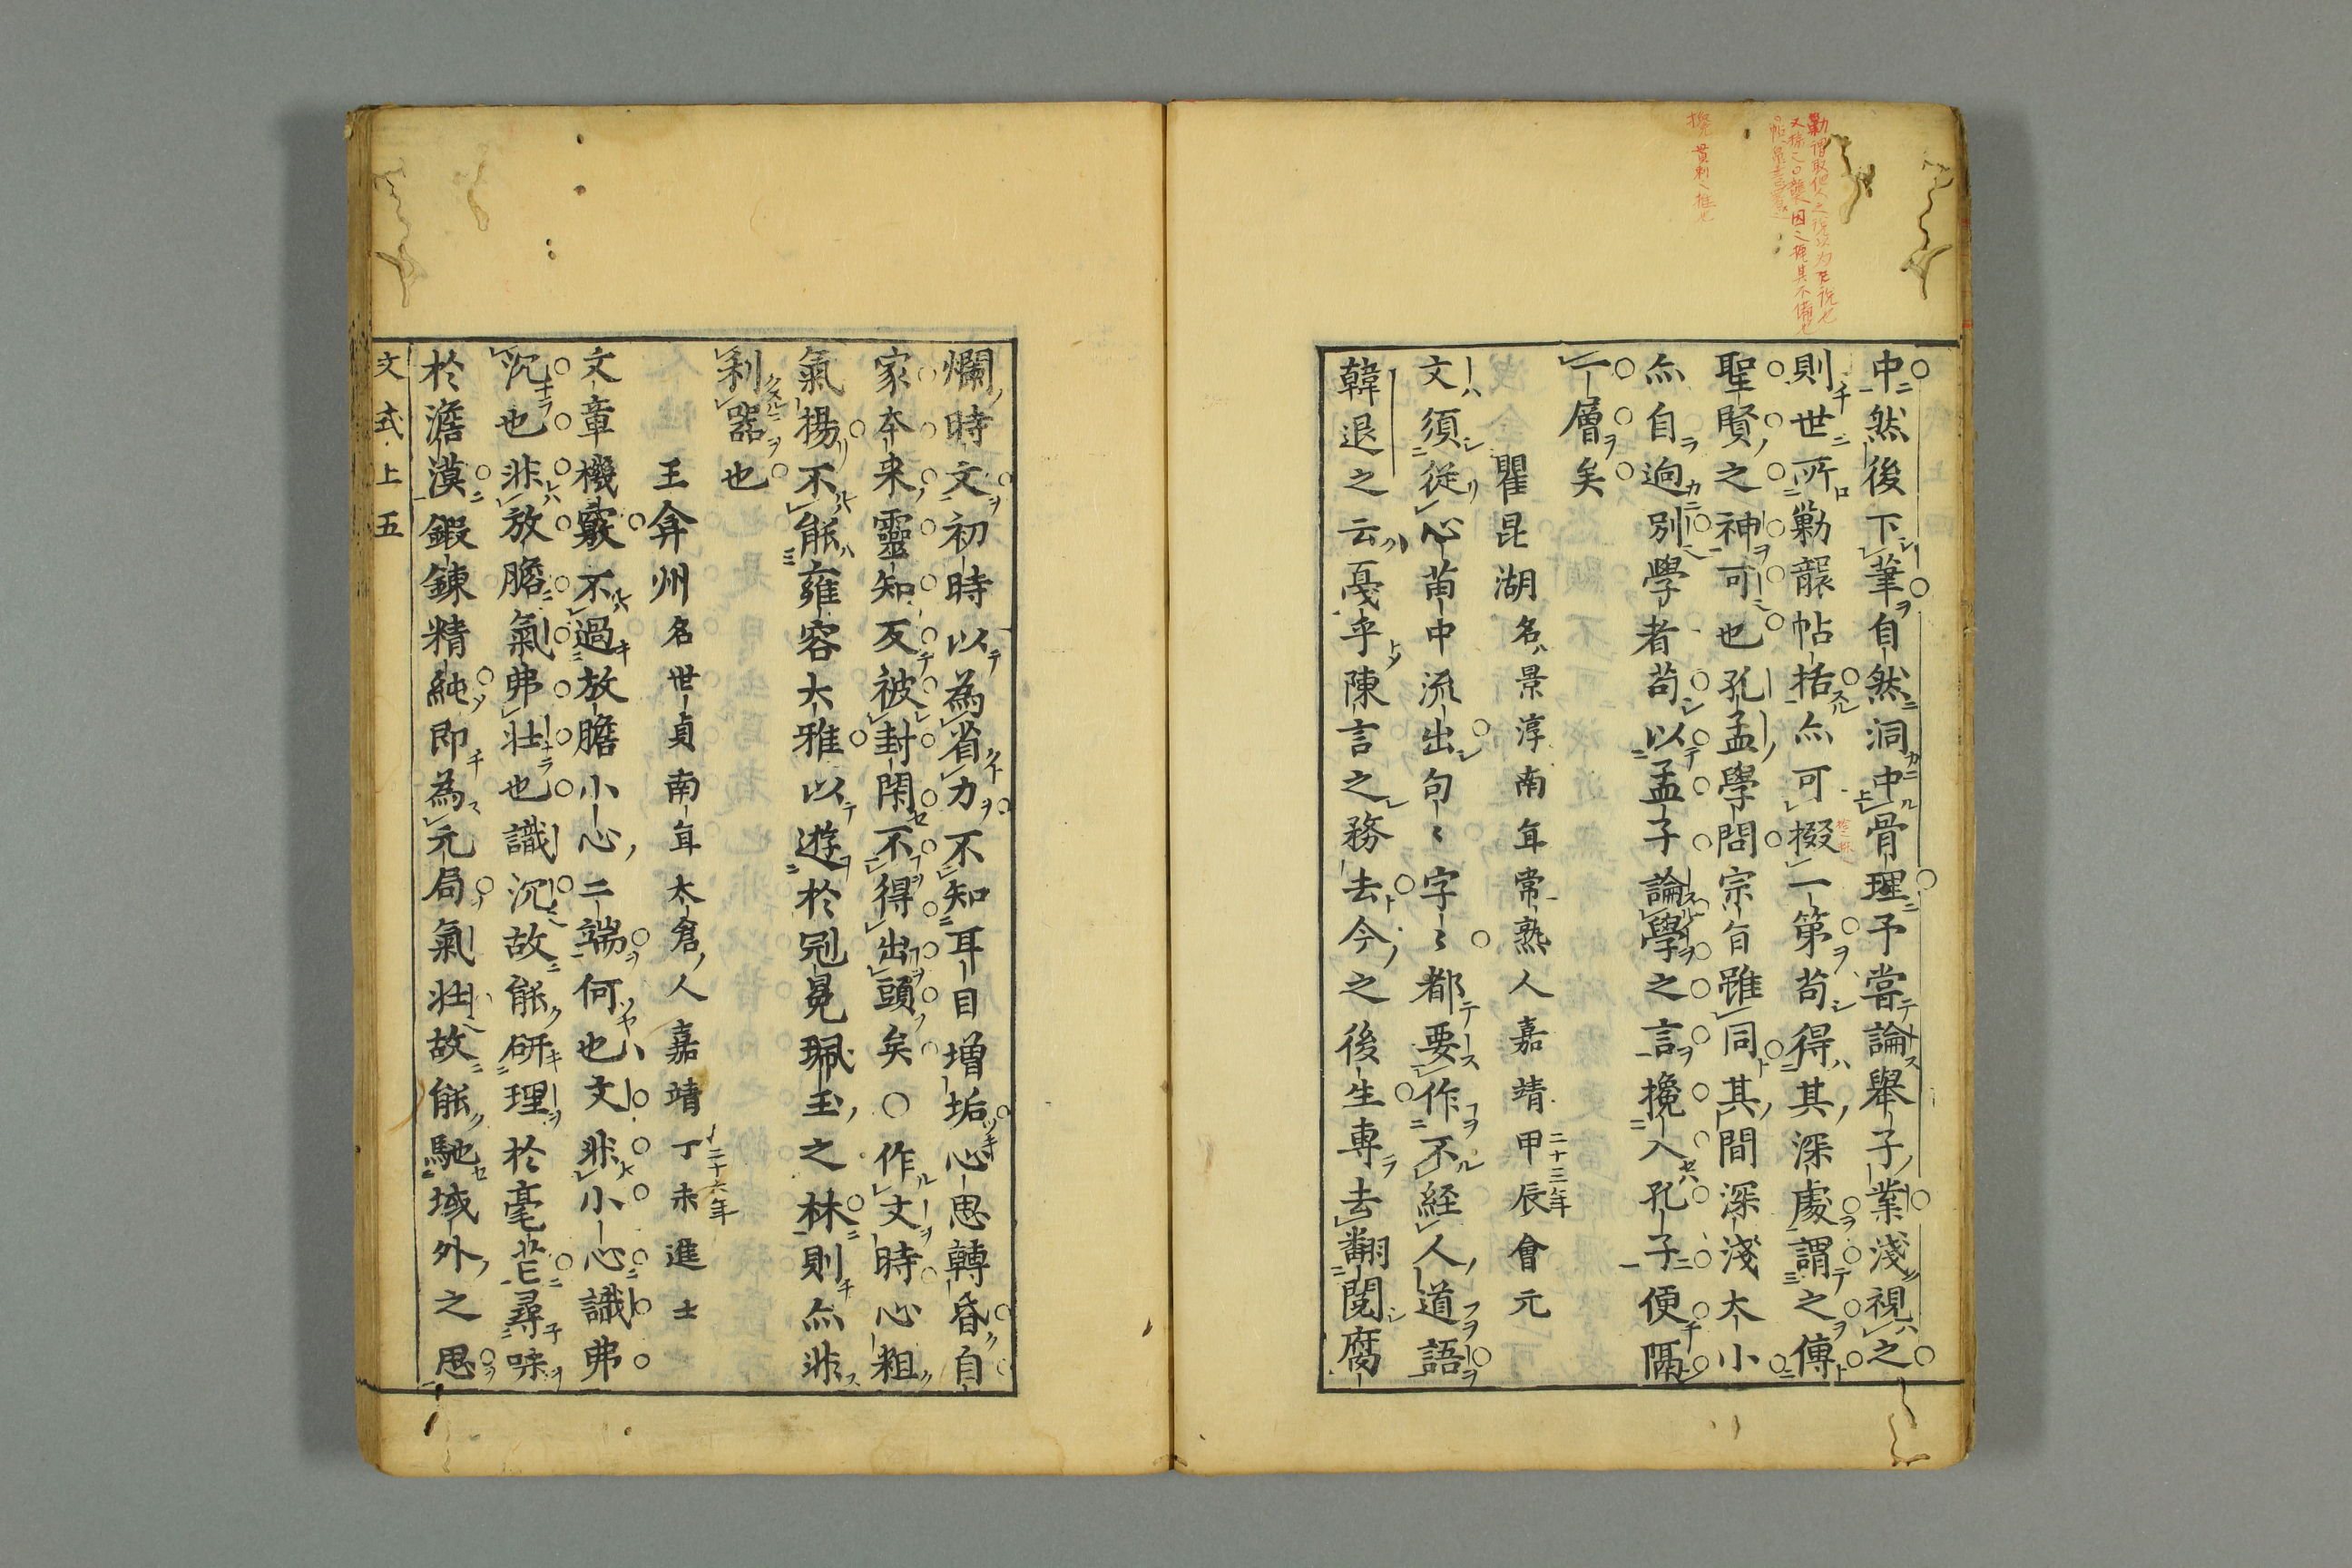 中然後下筆自然洞中骨理予嘗論舉子業淺視之
則世所勦襲帖括亦可掇一第苟得其深處謂之傳
聖賢之神可也孔孟學問宗旨雖同其間深淺大小
亦自迥別學者苟以孟子論學之言攙入孔子便隔
一層矣
瞿昆湖名景淳南直常熟人嘉靖甲辰會元
二十三年
文須從心苗中流出句〻字〻都要作不経人道語
韓退之云戞乎陳言之務去今之後生専去翻閲腐
爛時文初時以為省力不知耳目增垢心思轉昏自
家本来靈知反被封閉不得出頭矣○作文時心粗
氣揚不能雍容大雅以遊於冠冕珮玉之林則亦非
利器也
王弇州名世貞南直太倉人嘉靖丁未進士
二十六年
文章機竅不過放膽小心二端何也文非小心識弗
沉也非放膽氣弗壮也識沉故能研理於毫芒尋味
於澹漠鍜錬精純即為元局氣壮故能馳域外之思
文式上五